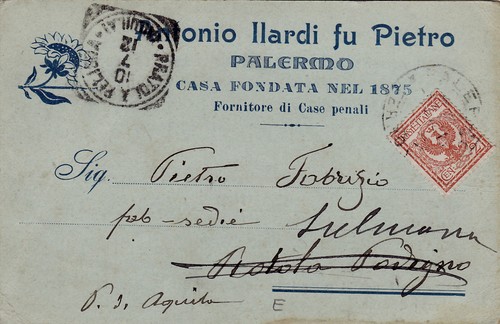 Antonio Ilardi fu Pietro
PALERMO
CASA FONDATA NEL 1875
Fornitore di Case penali
PRATOLA PELIGNA
10
7
12
POSTE ITALIANE
Sig. Pietro Fabrizio
fab-sedie Sulmona
Pratola Peligna
P. di Aquila
E